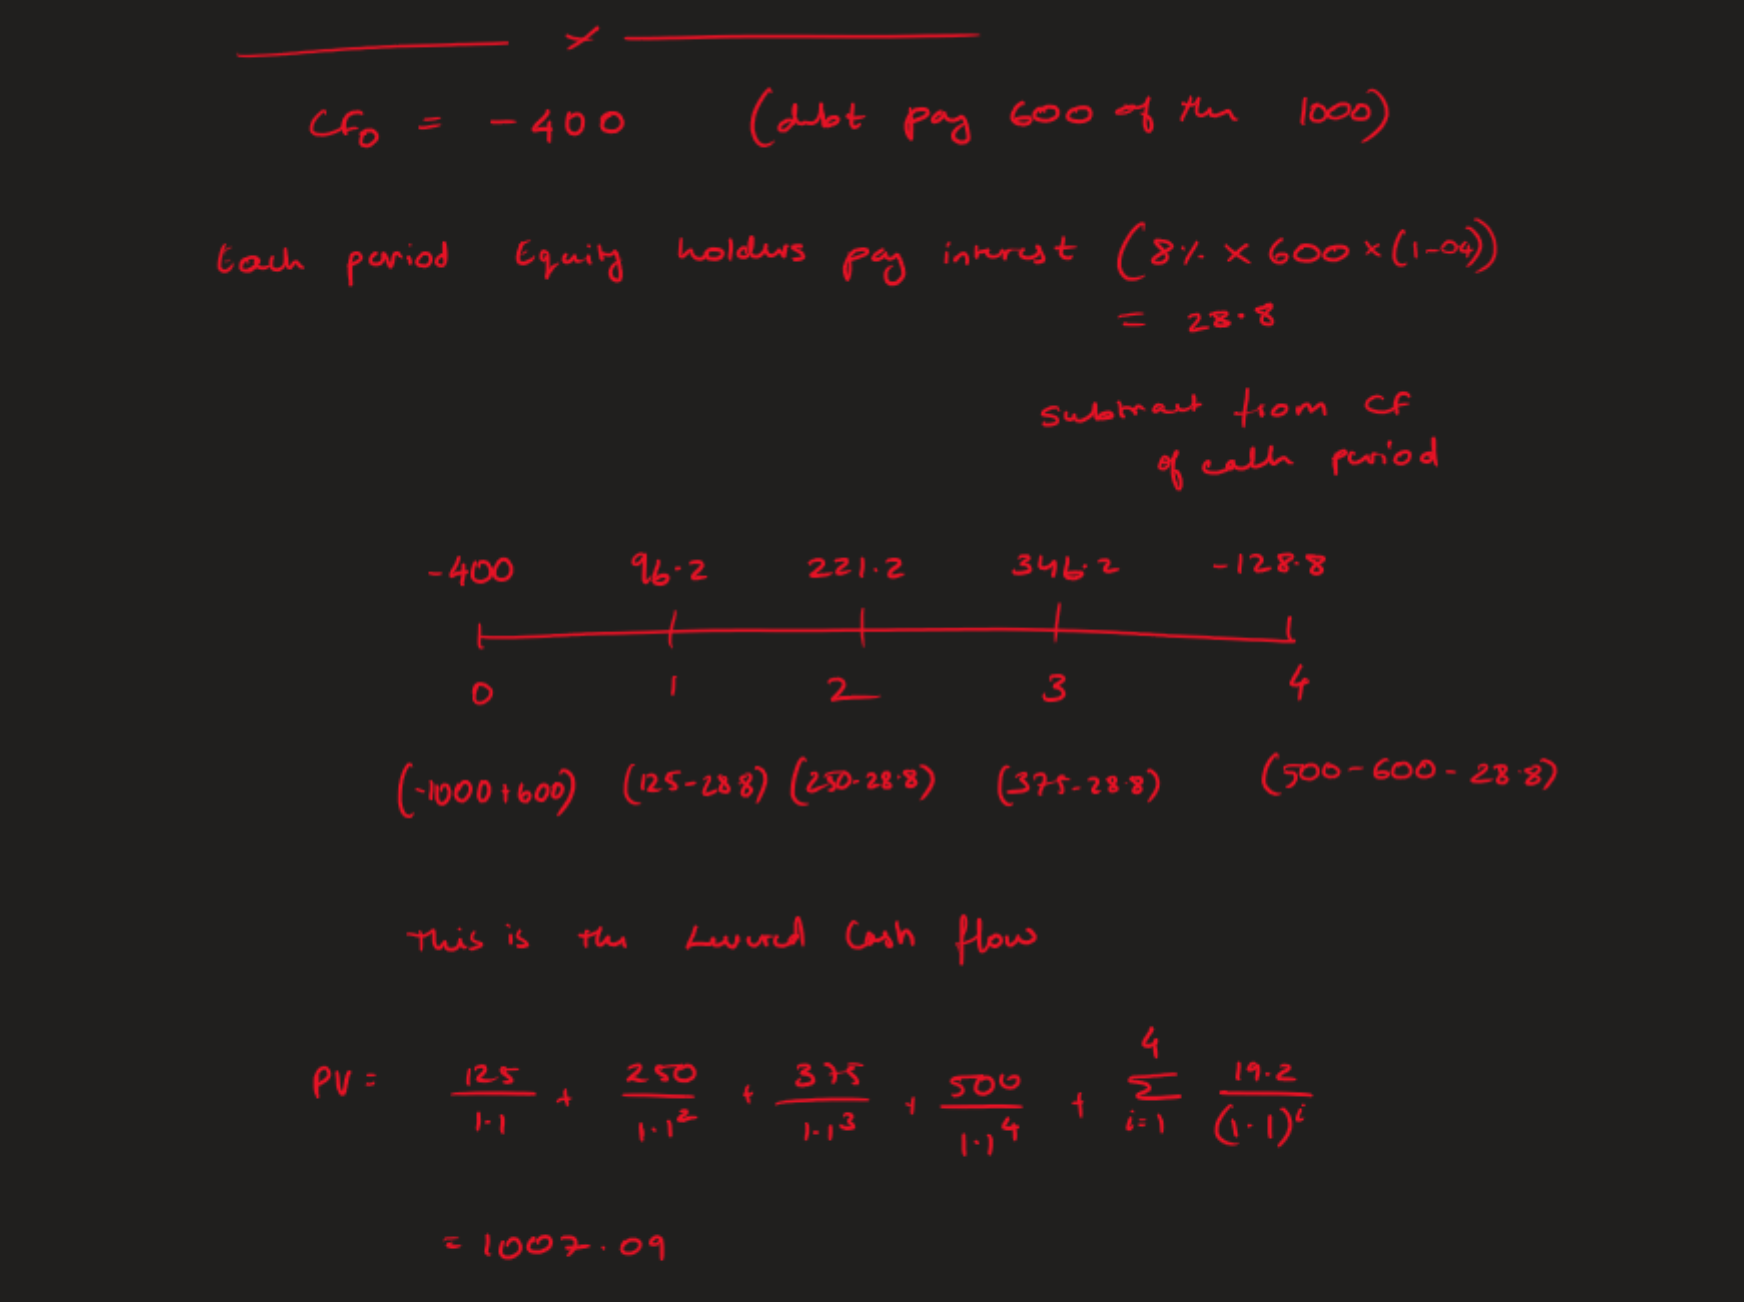 CF0 = -400 (debt pay 600 of the 1000)
Each period Equity holders pay interest (8% × 600 × (1-04))
= 28.8
subtract from CF
of each period
-400 96.2 221.2 346.2 -128.8
0 1 2 3 4
(-1000+600) (125-28.8) (250-28.8) (375-28.8) (500-600-28.8)
This is the Levered Cash flow
PV = 125/1.1 + 250/1.1^2 + 375/1.1^3 + 500/1.1^4 + Σ_{i=1}^{4} 19.2/(1.1)^i
= 1007.09